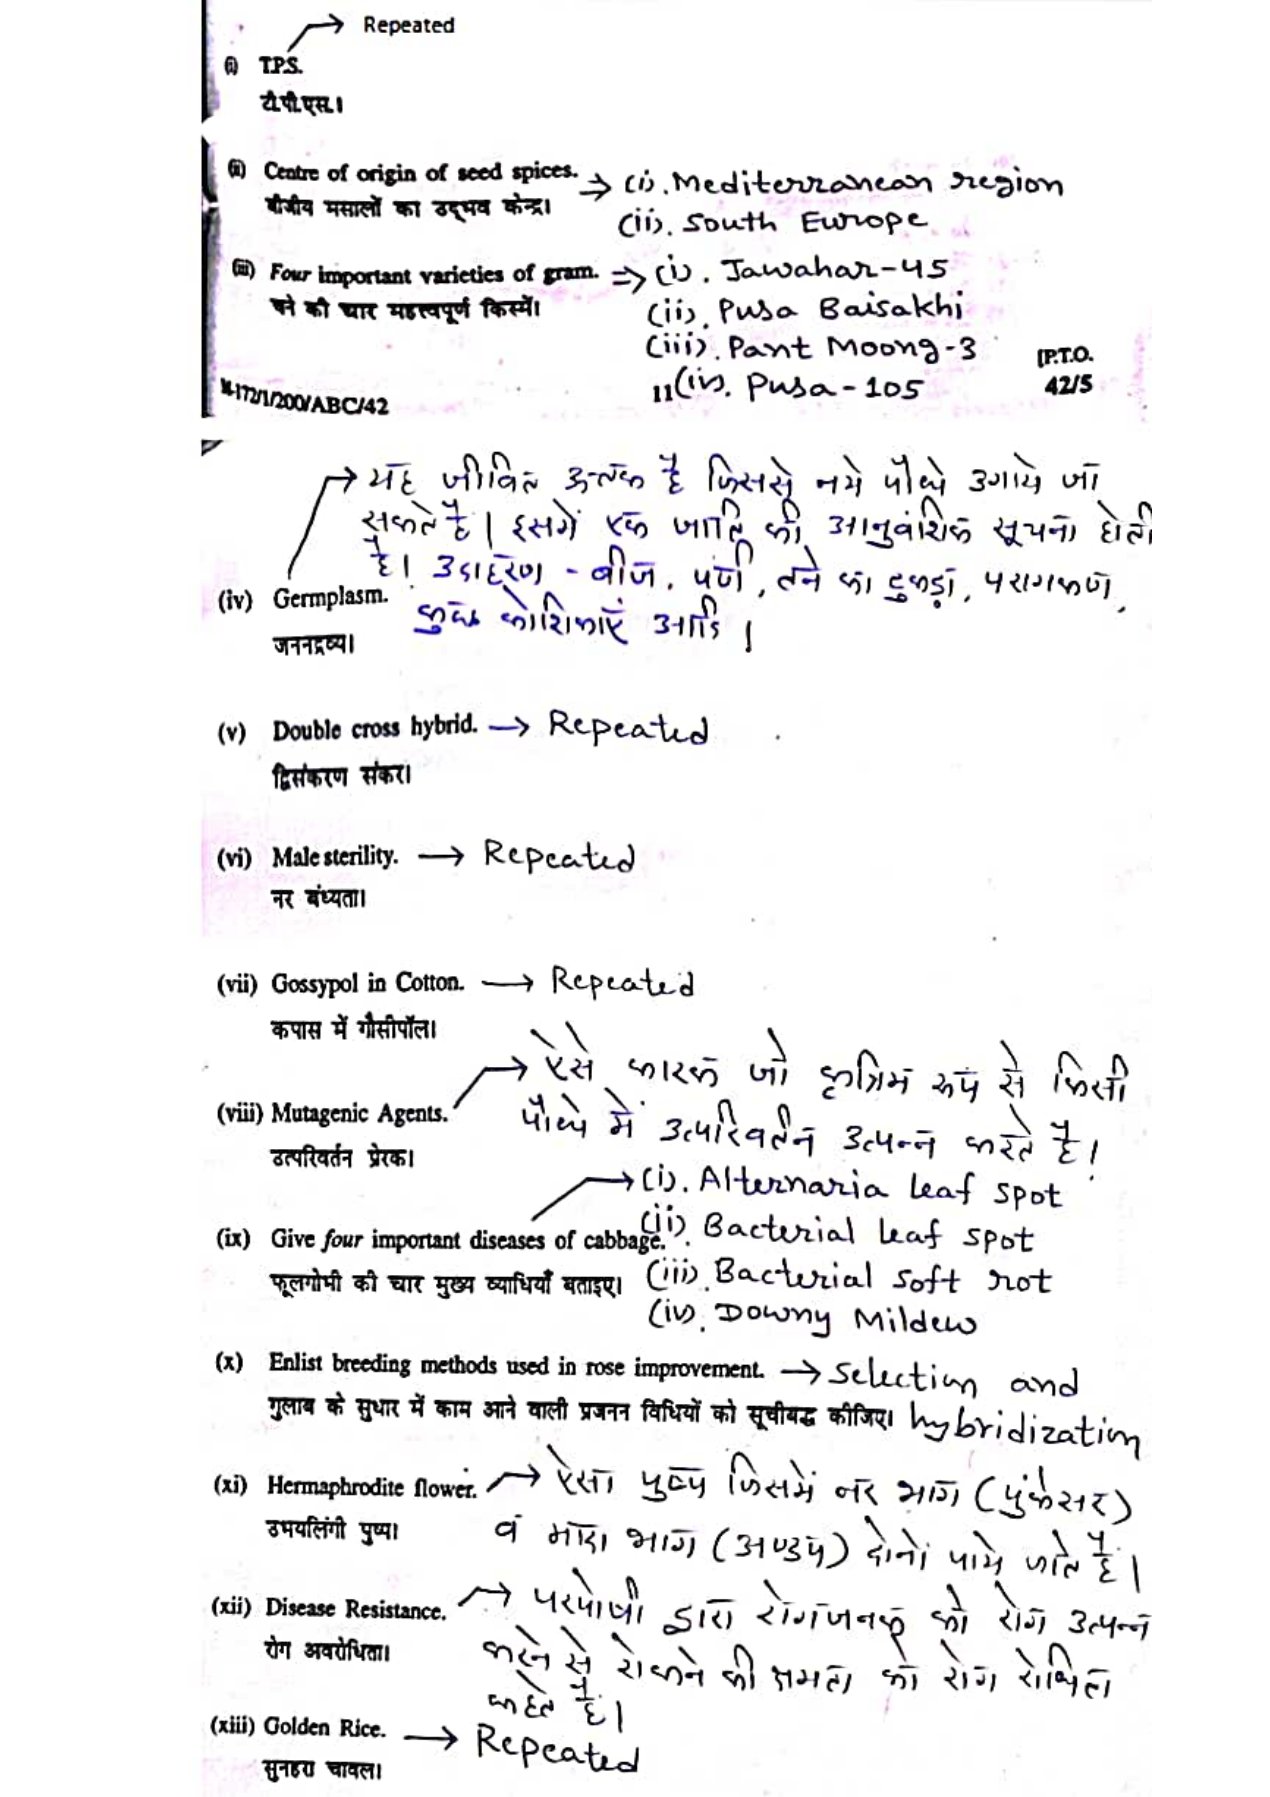 Repeated
(i) T.P.S.
टी.पी.एस.।
(ii) Centre of origin of seed spices. ⇒ (i). Mediterranean region
बीजीय मसालों का उद्भव केन्द्र। (ii). South Europe
(iii) Four important varieties of gram. ⇒ (i). Jawahar-45
चने की चार महत्त्वपूर्ण किस्में। (ii). Pusa Baisakhi
(iii). Pant Moong-3 [P.T.O.
11 (iv). Pusa-105 42/5
172/1/200/ABC/42
→ यह जीवित ऊतक है जिससे नये पौधे उगाये जा
सकते है। इसमें एक जाति की आनुवंशिक सूचना होती
है। उदाहरण - बीज, पर्ण, तने का टुकड़ा, परागकण,
(iv) Germplasm. कुछ कोशिकाएं आदि।
जननद्रव्य।
(v) Double cross hybrid. → Repeated
द्विसंकरण संकर।
(vi) Male sterility. → Repeated
नर बंध्यता।
(vii) Gossypol in Cotton. → Repeated
कपास में गौसीपॉल।
→ ऐसे कारक जो कृत्रिम रूप से किसी
(viii) Mutagenic Agents. पौधे में उत्परिवर्तन उत्पन्न करते है।
उत्परिवर्तन प्रेरक।
→ (i). Alternaria leaf spot
(ii). Bacterial leaf spot
(ix) Give four important diseases of cabbage.
फूलगोभी की चार मुख्य व्याधियाँ बताइए। (iii). Bacterial soft rot
(iv). Downy Mildew
(x) Enlist breeding methods used in rose improvement. → Selection and
गुलाब के सुधार में काम आने वाली प्रजनन विधियों को सूचीबद्ध कीजिए। hybridization
(xi) Hermaphrodite flower. → ऐसा पुष्प जिसमें नर भाग (पुंकेसर)
उभयलिंगी पुष्प। व मादा भाग (अण्डप) दोनों पाये जाते है।
(xii) Disease Resistance. → परपोषी द्वारा रोगजनक को रोग उत्पन्न
रोग अवरोधिता। करने से रोकने की क्षमता को रोग रोधिता
कहते है।
(xiii) Golden Rice. → Repeated
सुनहरा चावल।